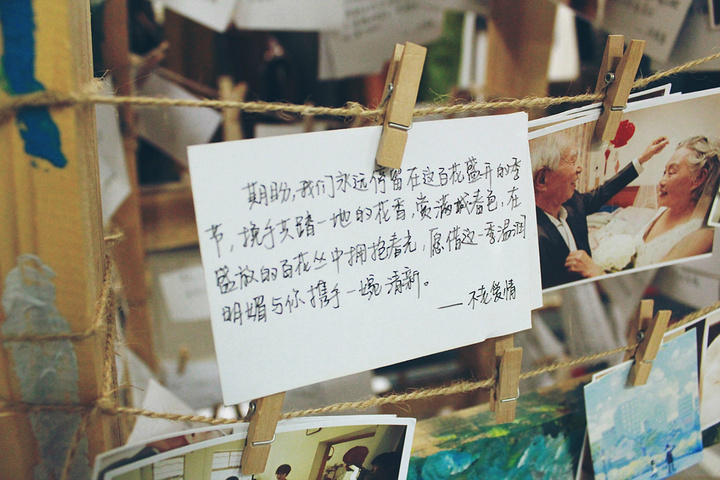 期盼,我们永远停留在这百花盛开的季
节,挽手共踏一地的花香,赏满城春色,在
盛放的百花丛中拥抱春光,愿借这一季温润
明媚与你携手一婉清新。
——不老爱情